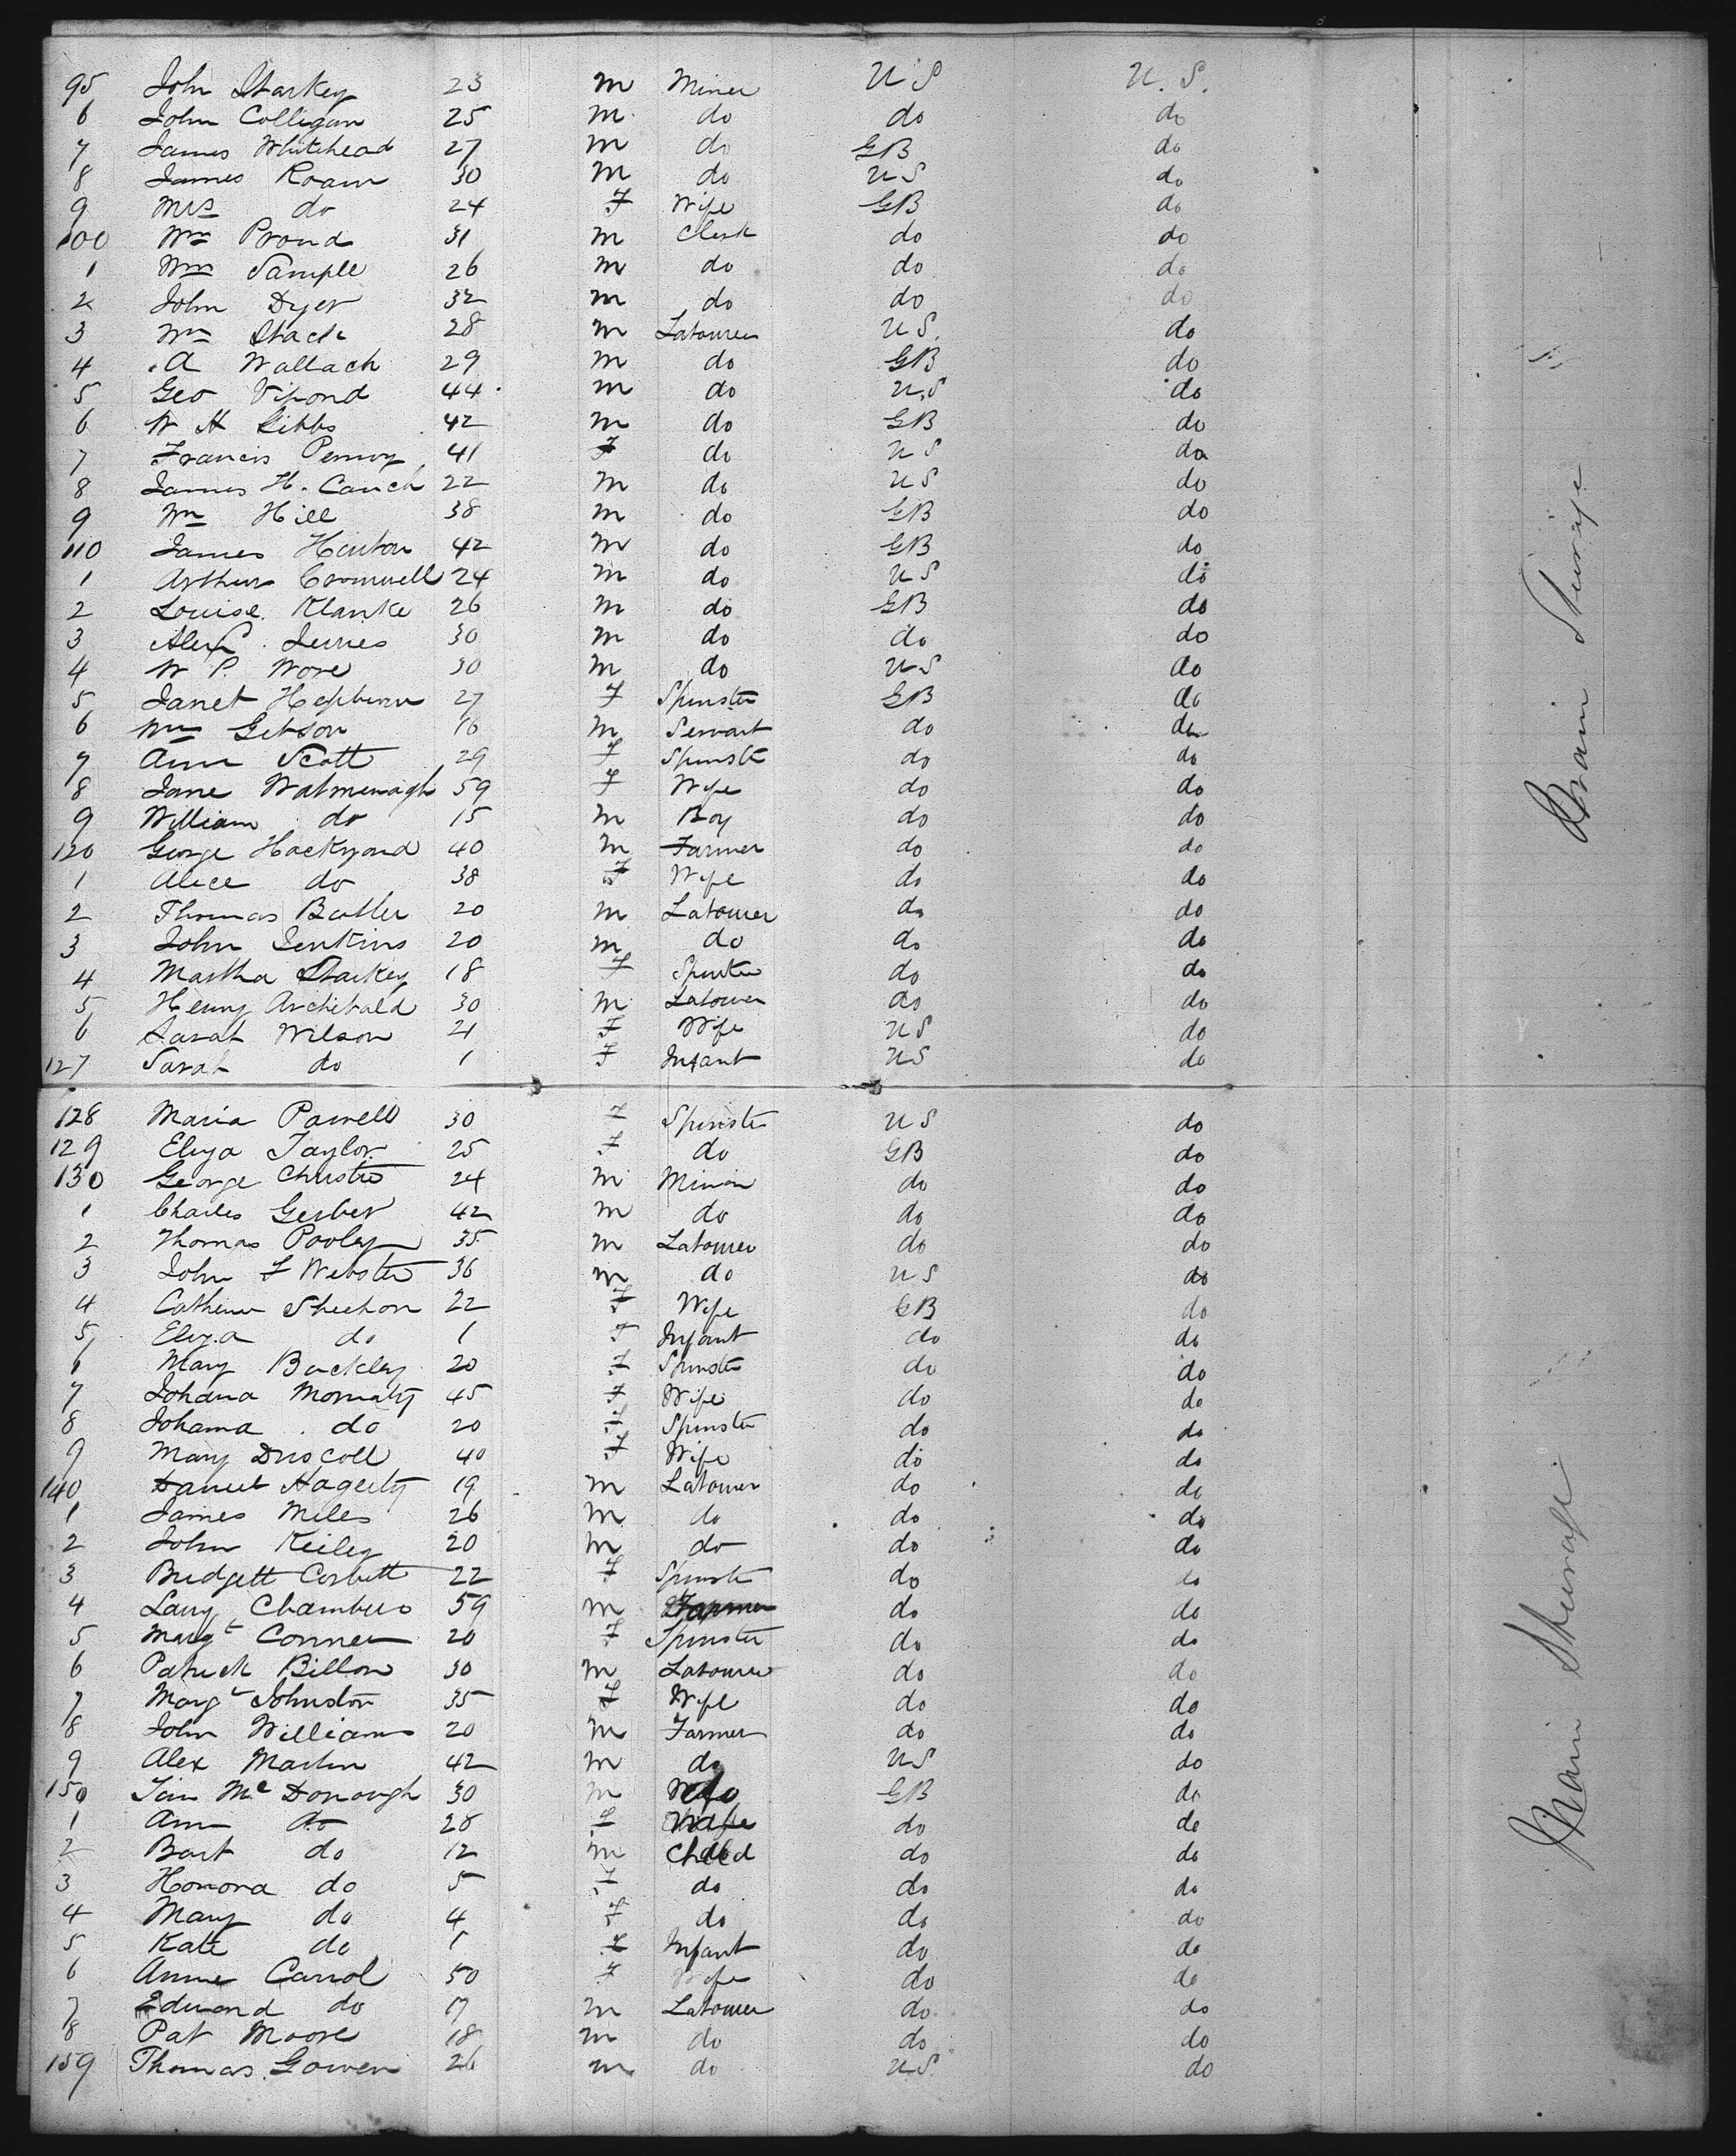 95 John Starkey 23 m Miner U S U. S.
6 John Colligan 25 m do do do
7 James Whitehead 27 m do GB do
8 James Roam 30 m do US do
9 Mrs do 24 F Wife GB do
100 Wm Proud 31 m Clerk do do
1 Wm Sample 26 m do do do
2 John Dyer 32 m do do do
3 Wm Stack 28 m Labourer U S. do
4 A Wallach 29 m do GB do
5 Geo Vipond 44 m do U.S do
6 W H Gibbs 42 m do GB do
7 Francis 41 F do U S do
8 James H. Couch 22 m do U S do
9 Wm Hill 38 m do GB do
110 James Henton 42 m do GB do
1 Arthur Cromwell 24 m do U S do
2 Louise Klanke 26 m do GB do
3 Alex 30 m do do do
4 W P. Wore 30 m do U S do
5 Janet Hepburn 27 F Spinster GB do
6 Wm Gibson 16 m Servant do do
7 Ann Scott 29 F Spinster do do
8 Jane Watmenough 59 F Wife do do
9 William do 15 m Boy do do
120 George Hockyard 40 m Farmer do do
1 Alice do 38 F Wife do do
2 Thomas Butler 20 m Labourer do do
3 John Jenkins 20 m do do do
4 Martha Starkey 18 F Spinster do do
5 Henry Archibald 30 m Labourer do do
6 Sarah Wilson 21 F Wife U S do
127 Sarah do 1 F Infant US do
128 Maria Powell 30 F Spinster U S do
129 Eliza Taylor 25 F do GB do
130 George Christie 24 m do do
1 Charles Gerber 42 m do do do
2 Thomas Pooley 35 m Labourer do do
3 John F Webster 36 m do U S do
4 Catherine Sheehon 22 F Wife GB do
5 Eliza do 1 F Infant do do
6 Mary Buckley 20 F Spinster do do
7 Johana Moriaty 45 F Wife do do
8 Johanna do 20 F Spinster do do
9 Mary Driscoll 40 F Wife do do
140 Daniel Hagerty 19 m Labourer do do
1 James Miles 26 m do do do
2 John Keiley 20 m do do do
3 Bridgett Corbett 22 F Spinster do do
4 Chambers 59 m Farmer do do
5 Margt Conner 20 F Spinster do do
6 Patrick Billon 30 m Labourer do do
7 Margt Johnston 35 F Wife do do
8 John Williams 20 m Farmer do do
9 Alex Martin 42 m do U S do
150 Tim Mc Donough 30 m do GB do
1 Ann do 28 F Wife do do
2 Bart do 12 m Child do do
3 Honora do 5 F do do do
4 Mary do 4 F do do do
5 Kate do 1 F Infant do do
6 Annie Carrol 50 F Wife do do
7 Edward do 17 m Labourer do do
8 Pat Moore 18 m do do do
159 Thomas Gowen 26 m do U.S. do
Main Steerage
Main Steerage